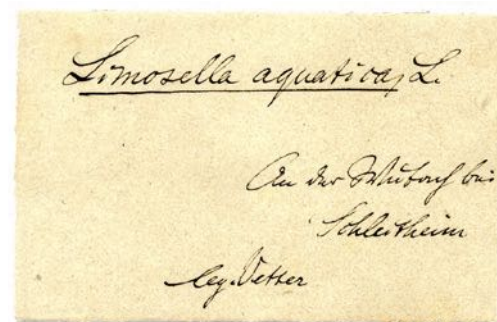 Limosella aquatica, L.
An der Wutach bei
Schleitheim
leg. Vetter